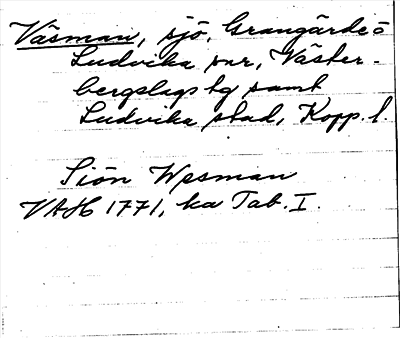 Väsman, sjö, Grangärde o
Ludvika snr, Väster-
bergslags tg samt
Ludvika stad, Kopp. l.
Siön Wesman
VAH 1771, ka Tab. I.